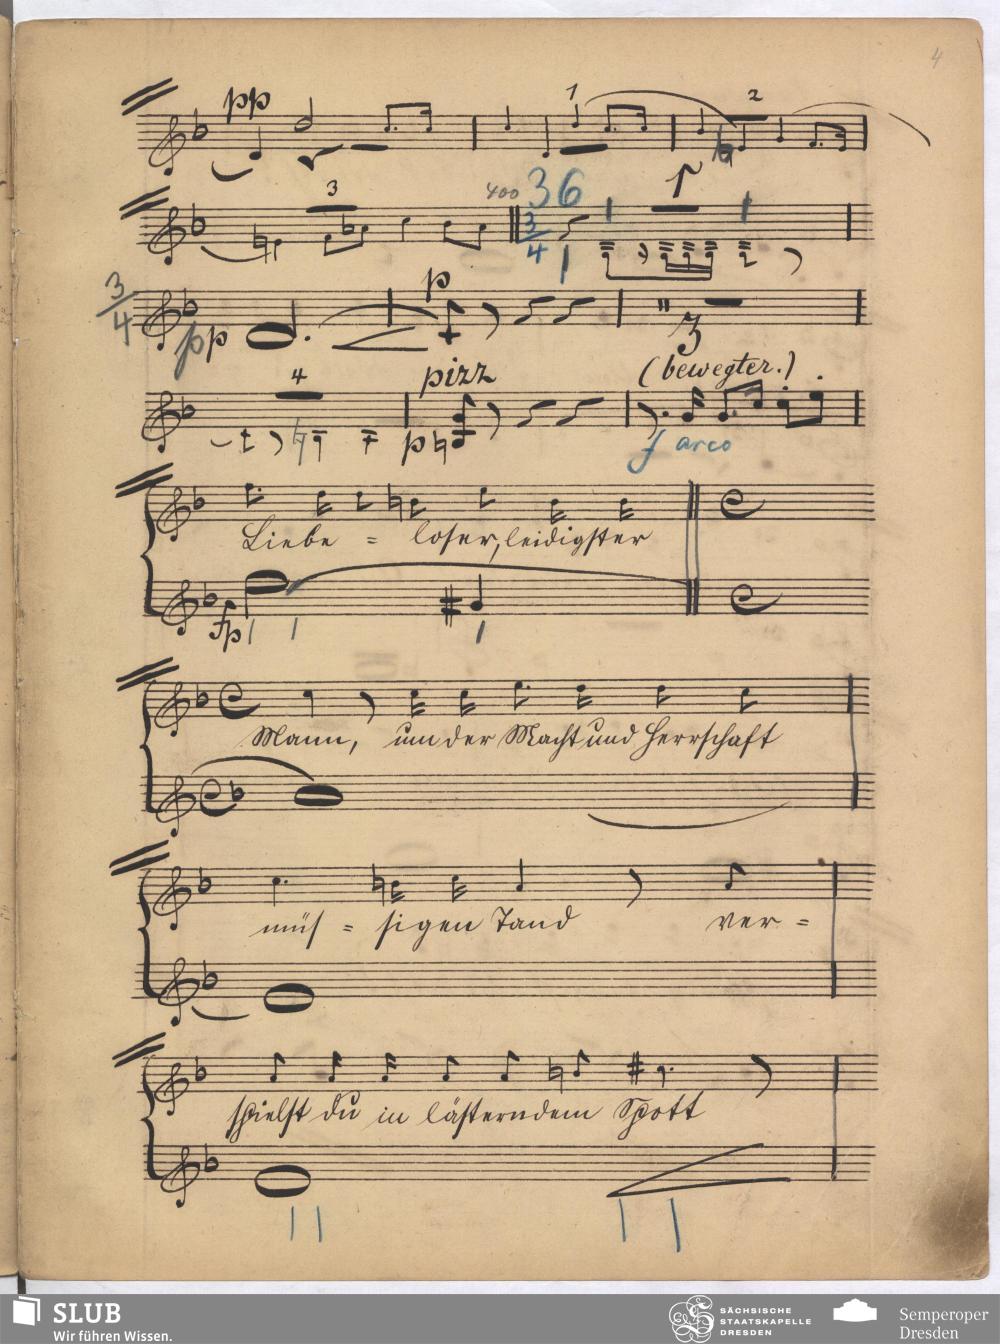 4
pp
1
2
3
400 36
3
4
1
1
1
3
4
pp
p
3
4
pizz
(bewegter.)
p
f arco
Liebe = loser, leidigster
fp
Mann, um der Macht und Herrschaft
müs = sigen Tand ver =
spielst du in lästerndem Spott
SLUB
Wir führen Wissen.
SÄCHSISCHE
STAATSKAPELLE
DRESDEN
Semperoper
Dresden